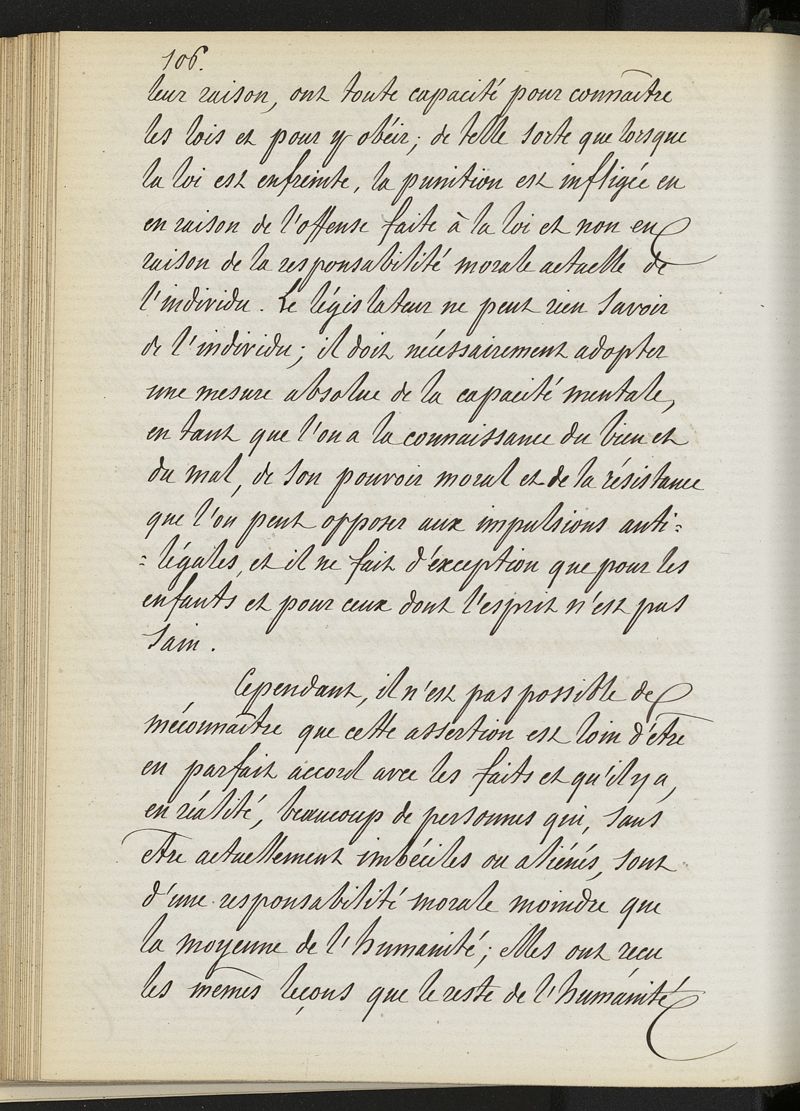 106.
leur raison, ont toute capacité pour connaître
les lois et pour y obéir; de telle sorte que lorsque
la loi est enfreinte, la punition est infligée en
en raison de l'offense faite à la loi et non en
raison de la responsabilité morale actuelle de
l'individu. Le législateur ne peut rien savoir
de l'individu; il doit nécessairement adopter
une mesure absolue de la capacité mentale,
en tant que l'on a la connaissance du bien et
du mal, de son pouvoir moral et de la résistance
que l'on peut opposer aux impulsions anti=
=légales, et il ne fait d'exception que pour les
enfants et pour ceux dont l'esprit n'est pas
sain.
Cependant, il n'est pas possible de
méconnaître que cette assertion est loin d'être
en parfait accord avec les faits et qu'il y a,
en réalité, beaucoup de personnes qui, sans
être actuellement imbéciles ou aliénés, sont
d'une responsabilité morale moindre que
la moyenne de l'humanité; elles ont recu
les mêmes leçons que le reste de l'humanité